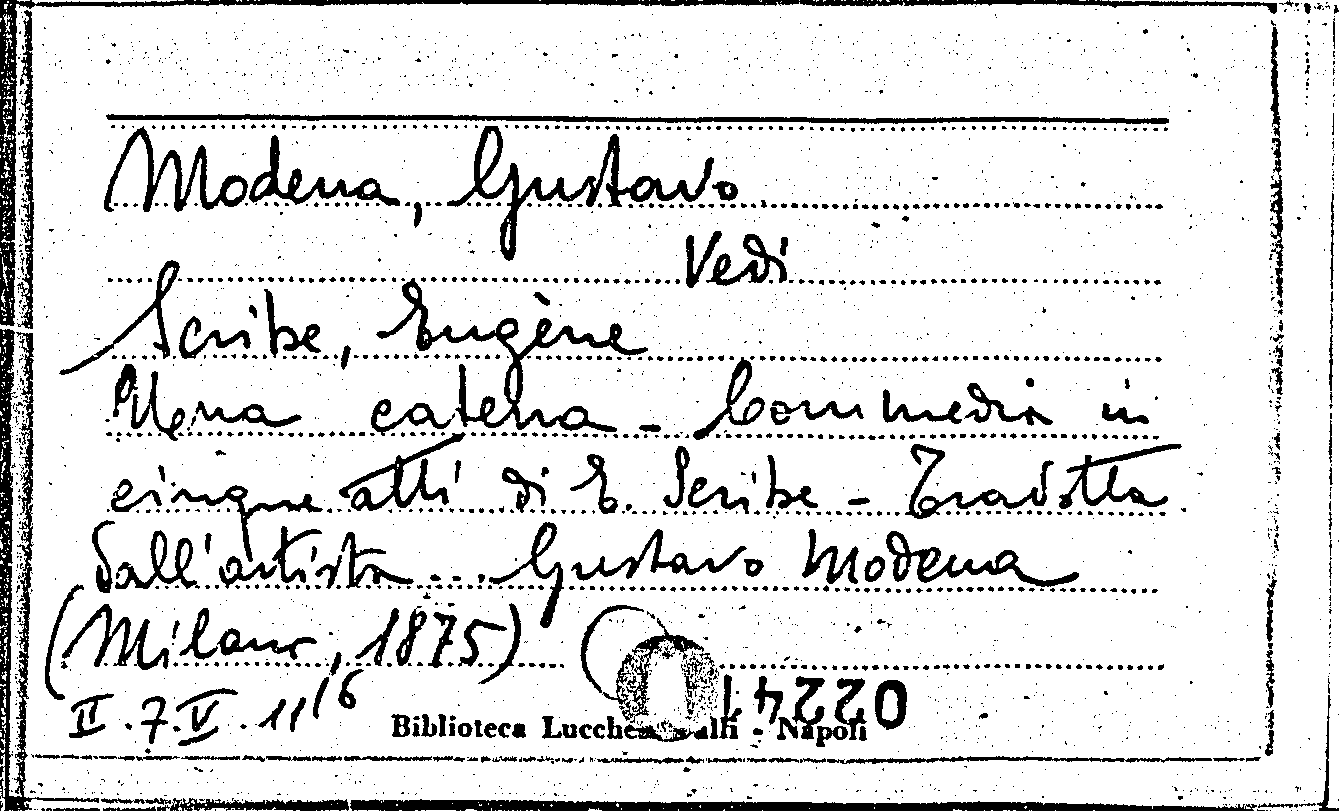 Modena, Gustavo
Vedi
Scribe, Eugène
Una catena - Commedia in
cinque atti di E. Scribe - Tradotta
dall'artista... Gustavo Modena
(Milano, 1875)
II.7.V.11/6
02241
Biblioteca Lucchesi Palli - Napoli